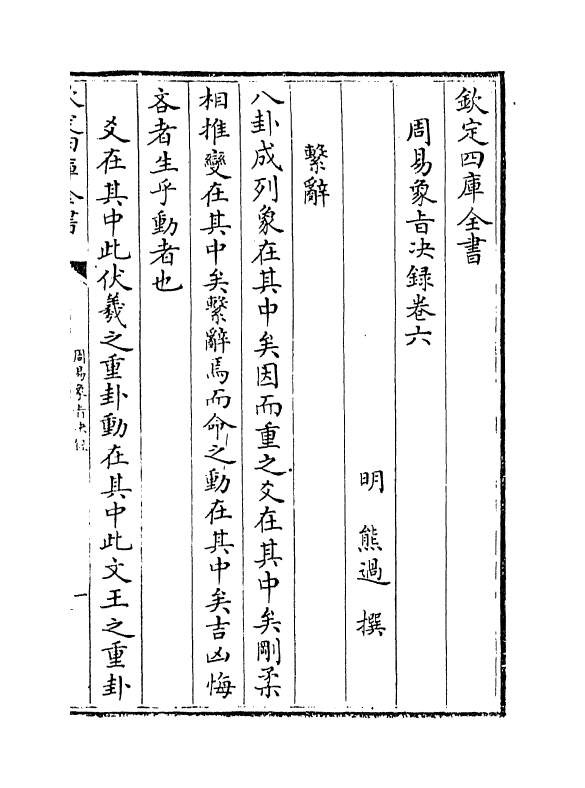 欽定四庫全書
周易象旨决録卷六
明　熊過　撰
繫辭
八卦成列象在其中矣因而重之爻在其中矣剛柔
相推變在其中矣繫辭焉而命之動在其中矣吉凶悔
吝者生乎動者也
爻在其中此伏羲之重卦動在其中此文王之重卦
欽定四庫全書
周易象旨决録
一